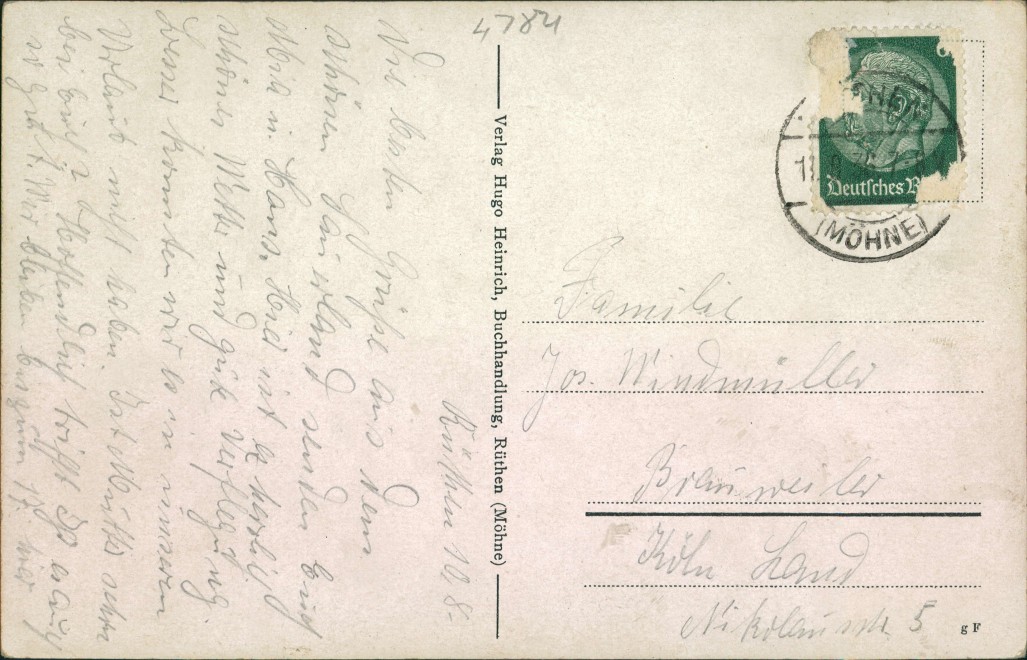 4784
Rüthen 10.8.
Die besten Grüße aus dem
schönen Sauerland senden Euch
Mia u. Hans. Hier ist es herrlich
schönes Wetter und gute Verpflegung
besser konnten wir es in unserem
Urlaub nicht haben. Ist Mutter schon
bei Euch? Hoffentlich trifft Ihr es auch
so gut. Wir bleiben bis zum 17. hier
Verlag Hugo Heinrich, Buchhandlung, Rüthen (Möhne)
Deutsches
(MÖHNE)
Familie
Jos. Windmüller
Brauweiler
Köln Land
Nikolausstr. 5
g F